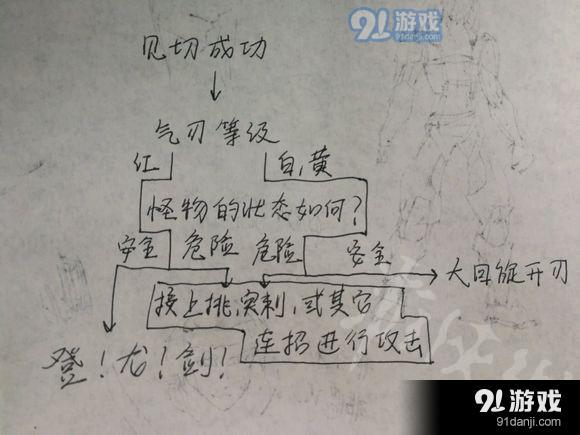 91游戏
91danji.com
见切成功
气刃等级
红 白,黄
怪物的状态如何?
安全 危险 危险 安全
大回旋开刃
接上挑,突刺,或其它
连招进行攻击
登!龙!剑!
91游戏
91danji.com